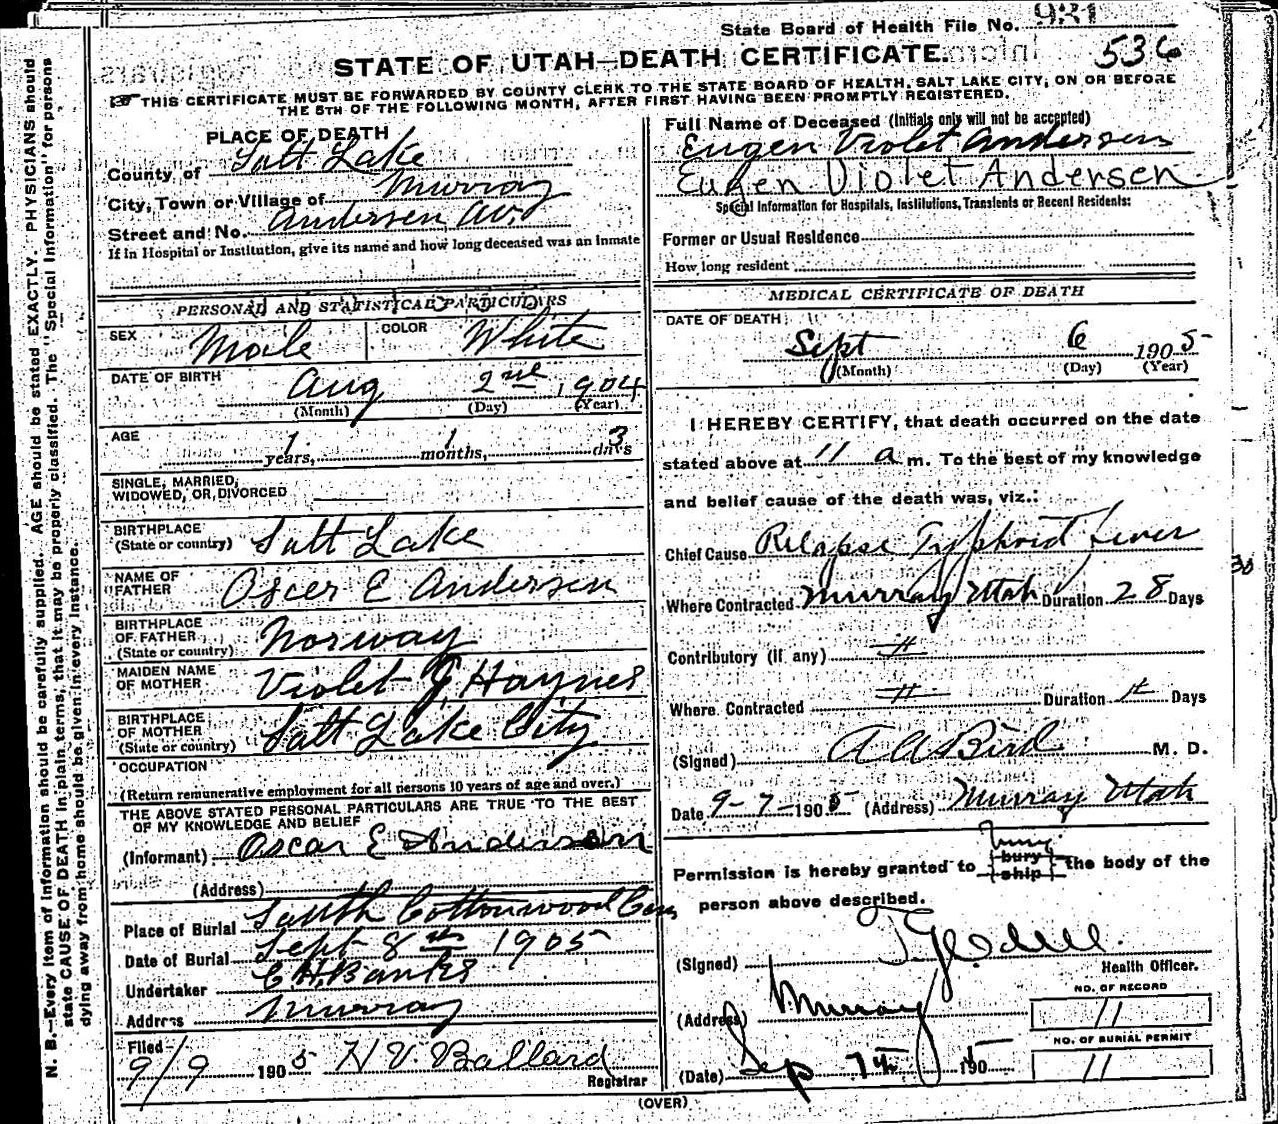 State Board of Health File No. 931
536
STATE OF UTAH—DEATH CERTIFICATE.
☞ THIS CERTIFICATE MUST BE FORWARDED BY COUNTY CLERK TO THE STATE BOARD OF HEALTH, SALT LAKE CITY, ON OR BEFORE
THE 5TH OF THE FOLLOWING MONTH, AFTER FIRST HAVING BEEN PROMPTLY REGISTERED.
PLACE OF DEATH
County of Salt Lake
City, Town or Village of Murray
Street and No. Andersen Av.
If in Hospital or Institution, give its name and how long deceased was an Inmate
PERSONAL AND STATISTICAL PARTICULARS
SEX Male COLOR White
DATE OF BIRTH Aug 2nd 1904
(Month) (Day) (Year)
AGE 1 years, 1 months, 3 days
SINGLE, MARRIED,
WIDOWED, OR DIVORCED
BIRTHPLACE
(State or country) Salt Lake
NAME OF
FATHER Oscer E Andersen
BIRTHPLACE
OF FATHER
(State or country) Norway
MAIDEN NAME
OF MOTHER Violet J Haynes
BIRTHPLACE
OF MOTHER
(State or country) Salt Lake City
OCCUPATION
(Return remunerative employment for all persons 10 years of age and over.)
THE ABOVE STATED PERSONAL PARTICULARS ARE TRUE TO THE BEST
OF MY KNOWLEDGE AND BELIEF
(Informant) Oscar E Anderson
(Address)
Place of Burial South Cottonwood Cem
Date of Burial Sept 8th 1905
Undertaker C.H. Banks
Address Murray
Filed
9/9 1905 H V. Ballard
Registrar
Full Name of Deceased (Initials only will not be accepted)
Eugen Violet Andersen
Eugen Violet Andersen
Special Information for Hospitals, Institutions, Transients or Recent Residents:
Former or Usual Residence
How long resident
MEDICAL CERTIFICATE OF DEATH
DATE OF DEATH
Sept 6 1905
(Month) (Day) (Year)
I HEREBY CERTIFY, that death occurred on the date
stated above at 11 a m. To the best of my knowledge
and belief cause of the death was, viz.:
Chief Cause Relapse Typhoid Fever
Where Contracted Murray Utah Duration 28 Days
Contributory (if any)
Where Contracted Duration Days
(Signed) A A Bird M. D.
Date 9-7-1905 (Address) Murray Utah
Permission is hereby granted to bury ship the body of the
person above described.
(Signed)
Health Officer.
(Address) Murray
(Date) Sep 7th 1905
NO. OF RECORD
11
NO. OF BURIAL PERMIT
11
(OVER)
N. B.—Every item of information should be carefully supplied. AGE should be stated EXACTLY. PHYSICIANS should
state CAUSE OF DEATH in plain terms, that it may be properly classified. The "Special Information" for persons
dying away from home should be given in every instance.